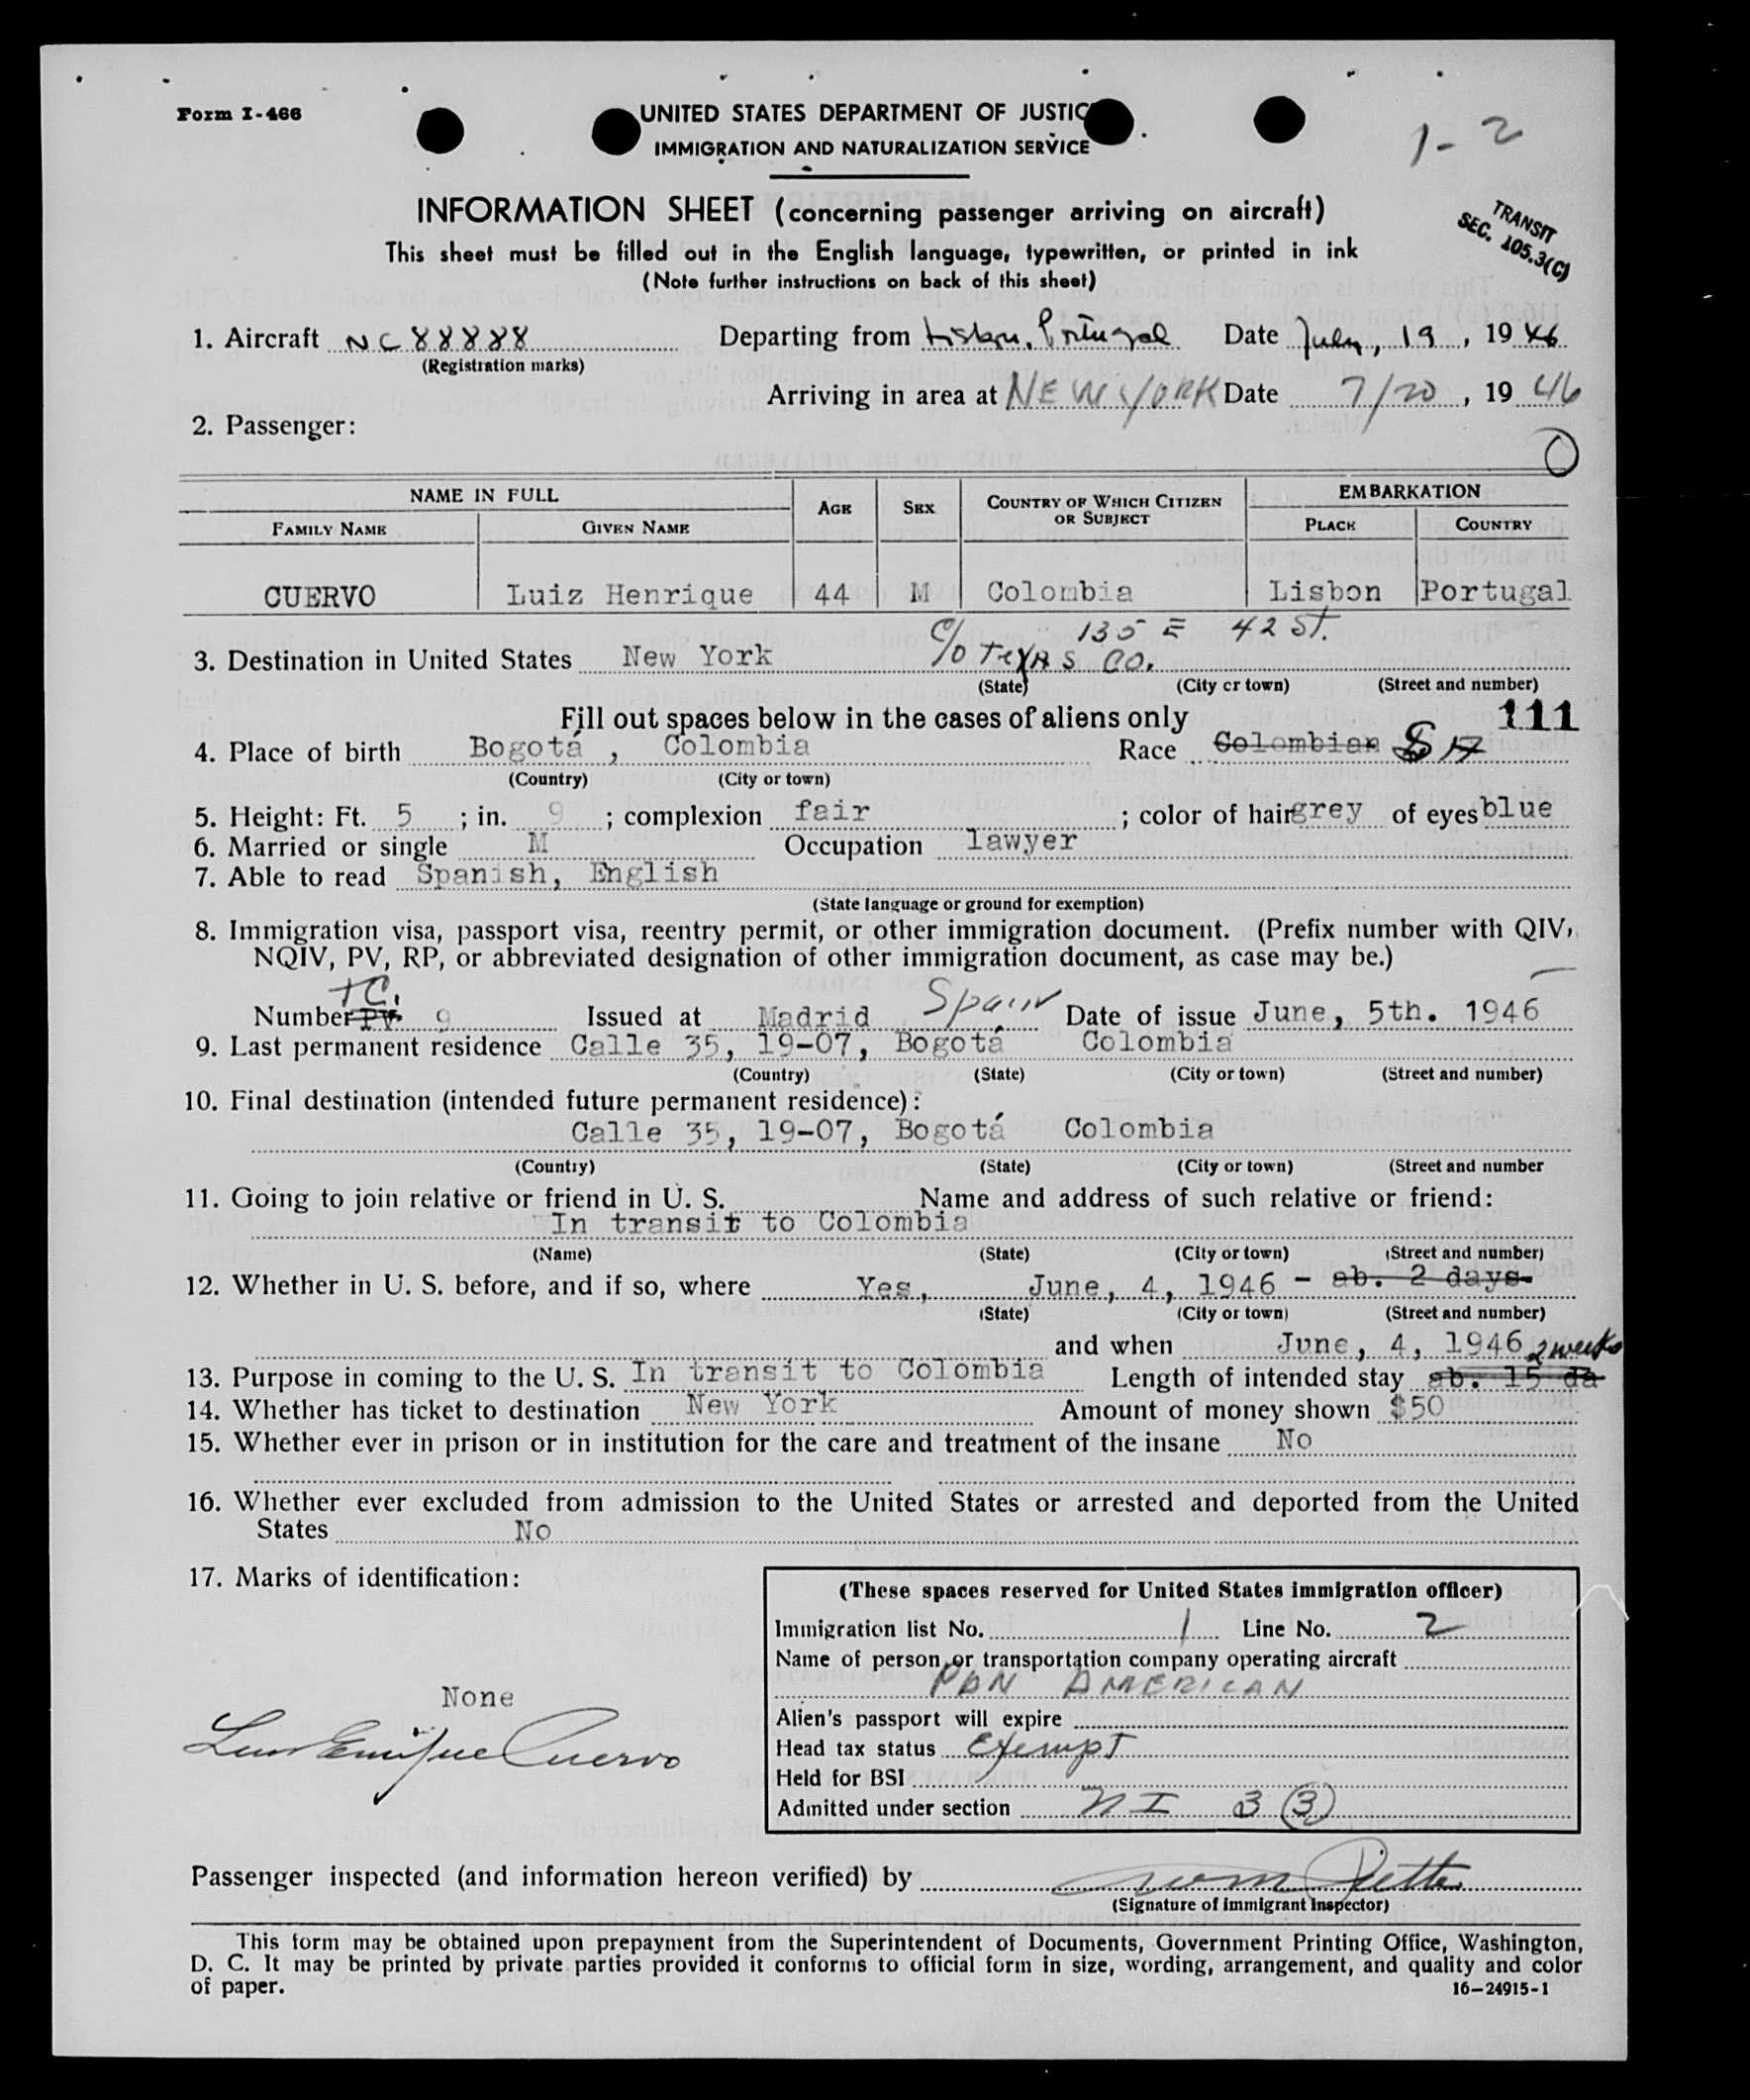 Form I-466
UNITED STATES DEPARTMENT OF JUSTIC
IMMIGRATION AND NATURALIZATION SERVICE
1-2
INFORMATION SHEET (concerning passenger arriving on aircraft)
TRANSIT
SEC. 105.3(C)
This sheet must be filled out in the English language, typewritten, or printed in ink
(Note further instructions on back of this sheet)
1. Aircraft NC88888 Departing from Lisbon, Portugal Date July, 19, 1946
(Registration marks)
Arriving in area at NEW YORK Date 7/20, 1946
2. Passenger:
O
NAME IN FULL AGE SEX COUNTRY OF WHICH CITIZEN OR SUBJECT EMBARKATION
FAMILY NAME GIVEN NAME PLACE COUNTRY
CUERVO Luiz Henrique 44 M Colombia Lisbon Portugal
135 E 42 St.
3. Destination in United States New York C/O TEXAS CO.
(State) (City or town) (Street and number)
Fill out spaces below in the cases of aliens only 111
4. Place of birth Bogotá, Colombia Race Colombian
(Country) (City or town)
5. Height: Ft. 5; in. 9; complexion fair; color of hair grey of eyes blue
6. Married or single M Occupation lawyer
7. Able to read Spanish, English
(State language or ground for exemption)
8. Immigration visa, passport visa, reentry permit, or other immigration document. (Prefix number with QIV,
NQIV, PV, RP, or abbreviated designation of other immigration document, as case may be.)
TC.
Number PV 9 Issued at Madrid Spain Date of issue June, 5th. 1946
9. Last permanent residence Calle 35, 19-07, Bogotá Colombia
(Country) (State) (City or town) (Street and number)
10. Final destination (intended future permanent residence):
Calle 35, 19-07, Bogotá Colombia
(Country) (State) (City or town) (Street and number
11. Going to join relative or friend in U. S. Name and address of such relative or friend:
In transit to Colombia
(Name) (State) (City or town) (Street and number)
12. Whether in U. S. before, and if so, where Yes, June, 4, 1946 - ab. 2 days.
(State) (City or town) (Street and number)
and when June, 4, 1946
2 weeks
13. Purpose in coming to the U. S. In transit to Colombia Length of intended stay ab. 15 da
14. Whether has ticket to destination New York Amount of money shown $50
15. Whether ever in prison or in institution for the care and treatment of the insane No
16. Whether ever excluded from admission to the United States or arrested and deported from the United
States No
17. Marks of identification:
None
Luis Enrique Cuervo
(These spaces reserved for United States immigration officer)
Immigration list No. 1 Line No. 2
Name of person or transportation company operating aircraft
PAN AMERICAN
Alien's passport will expire
Head tax status Exempt
Held for BSI
Admitted under section NI 3 (3)
Passenger inspected (and information hereon verified) by
(Signature of immigrant inspector)
This form may be obtained upon prepayment from the Superintendent of Documents, Government Printing Office, Washington,
D. C. It may be printed by private parties provided it conforms to official form in size, wording, arrangement, and quality and color
of paper.
16-24915-1